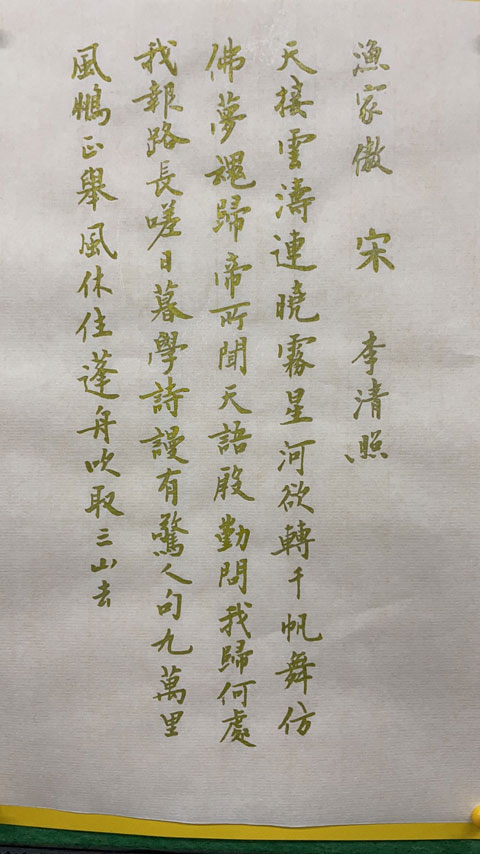 漁家傲 宋 李清照
天接雲濤連曉霧星河欲轉千帆舞仿
佛夢魂歸帝所聞天語殷勤問我歸何處
我報路長嗟日暮學詩謾有驚人句九萬里
風鵬正舉風休住蓬舟吹取三山去